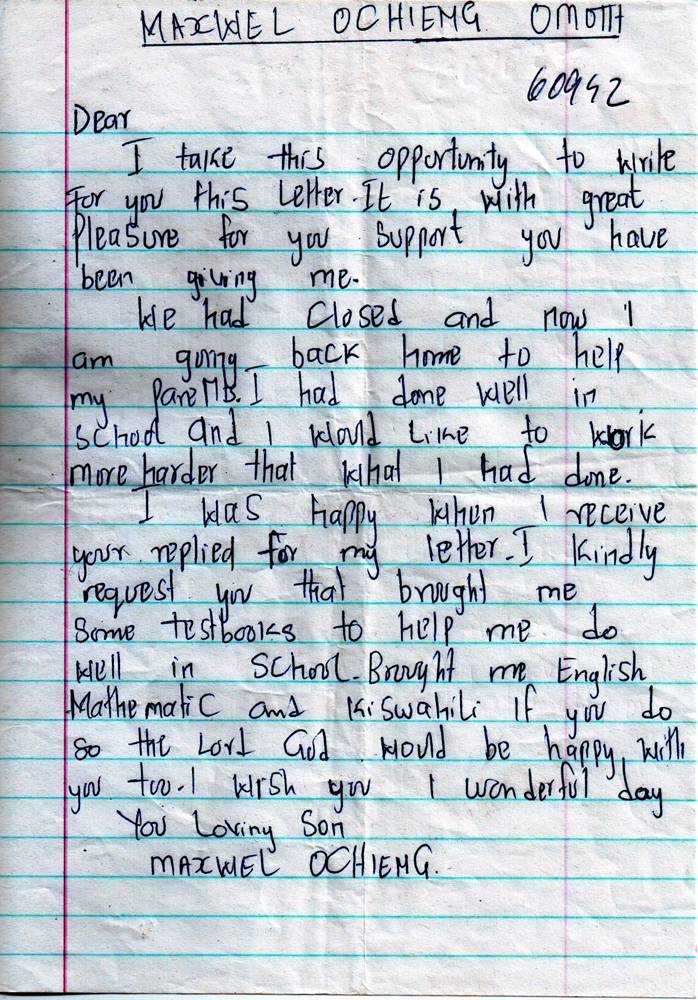 MAXWEL OCHIENG OMOTH
60942
Dear
I take this opportunity to write
for you this Letter. It is with great
Pleasure for you support you have
been giving me.
We had closed and now I
am going back home to help
my parents. I had done well in
school and I would Like to work
more harder that what I had done.
I was happy when I receive
your replied for my letter. I kindly
request you that brought me
Some testbooks to help me do
well in school. Brought me English
Mathematic and Kiswahili If you do
so the Lord God would be happy with
you too. I wish you I wonderful day
You Loving Son
MAXWEL OCHIENG.